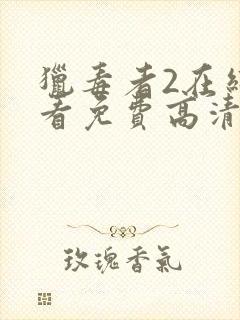 獵毒者2在
看免費高清
玫瑰香氣